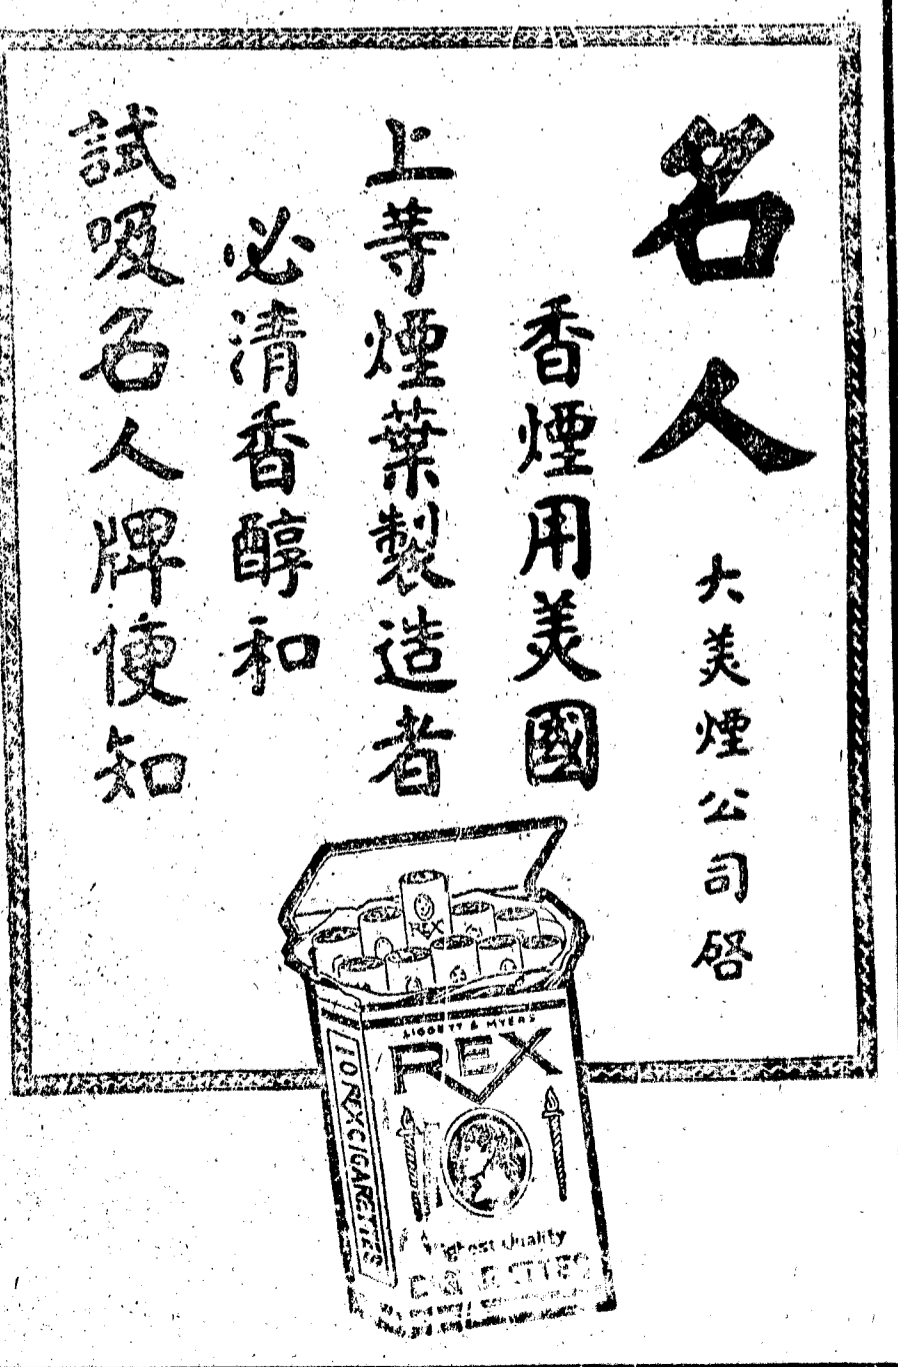 名人
大美煙公司啓
香煙用美國
上等煙葉製造者
必清香醇和
試吸名人牌便知
REX
LIGGETT & MYERS
REX
10 REX CIGARETTES
Highest Quality
CIGARETTES